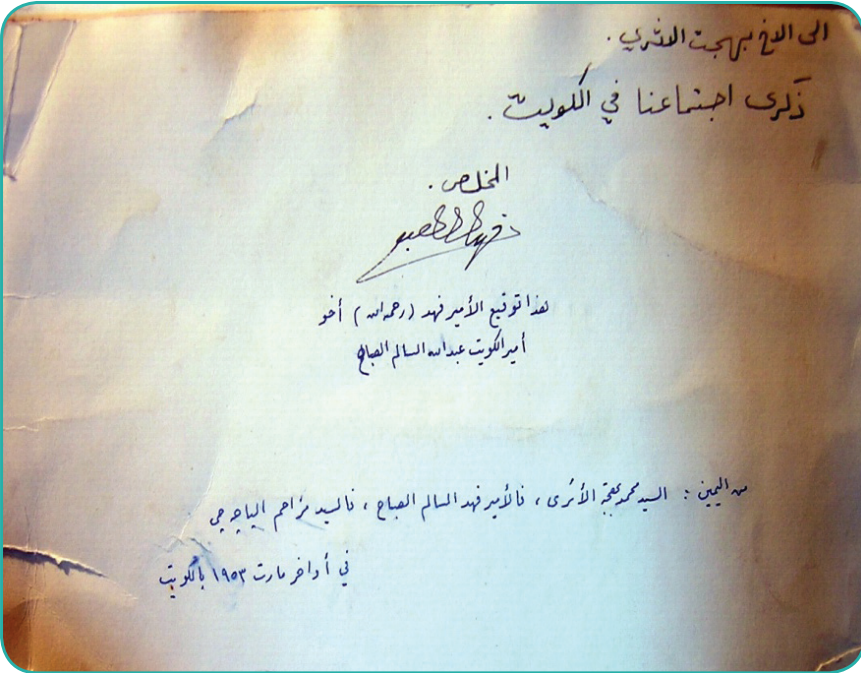 الى الاخ بهجت الاثري .
ذكرى اجتماعنا في الكويت .
المخلص .
هذا توقيع الأمير فهد (رحمه الله) أخو
أمير الكويت عبدالله السالم الصباح
من اليمين : السيد محمد بهجة الأثرى ، فالأمير فهد السالم الصباح ، فالسيد مزاحم الباجه جي
في أواخر مارت ١٩٥٣ بالكويت